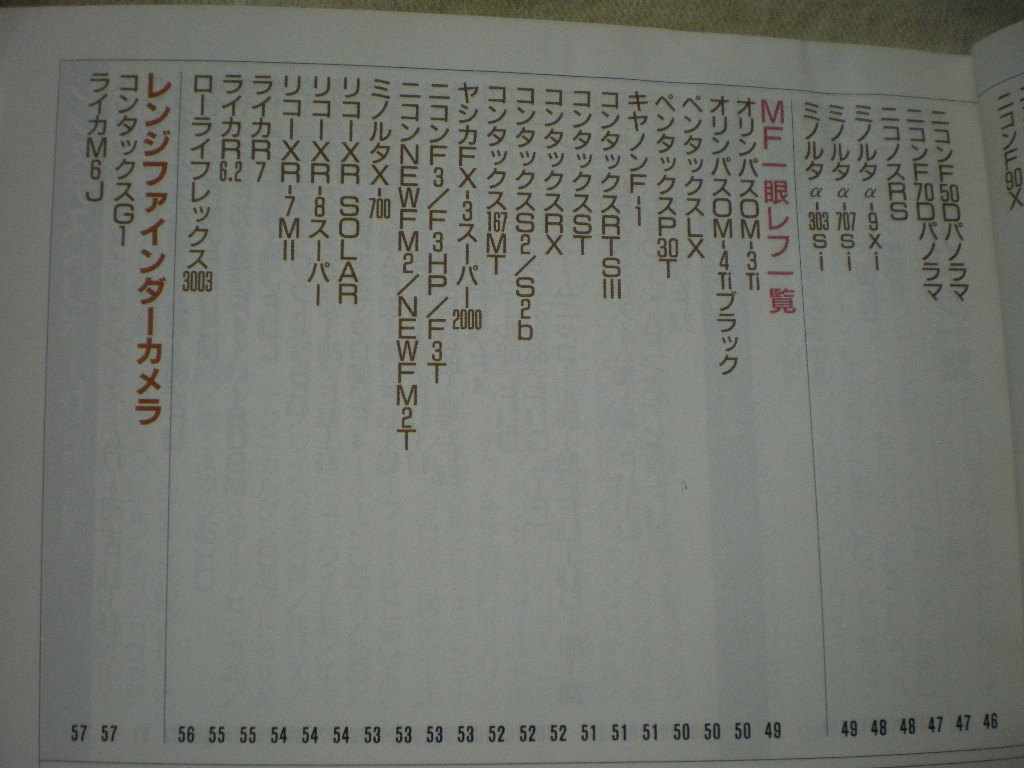 ニコンF90X
ニコンF50Dパノラマ 46
ニコンF70Dパノラマ 47
ニコノスRS 47
ミノルタα-9xi 48
ミノルタα-707si 48
ミノルタα-303si 49
MF一眼レフ一覧
オリンパスOM-3Ti 49
オリンパスOM-4Tiブラック 50
ペンタックスLX 50
ペンタックスP30T 50
キヤノンF-1 51
コンタックスRTSIII 51
コンタックスST 51
コンタックスRX 52
コンタックスS2/S2b 52
コンタックス167MT 52
ヤシカFX-3スーパー2000 53
ニコンF3/F3HP/F3T 53
ニコンNEWFM2/NEWFM2T 53
ミノルタX-700 53
リコーXR SOLAR 54
リコーXR-8スーパー 54
リコーXR-7MII 54
ライカR7 55
ライカR6.2 55
ローライフレックス3003 56
レンジファインダーカメラ
コンタックスG-1 57
ライカM6J 57